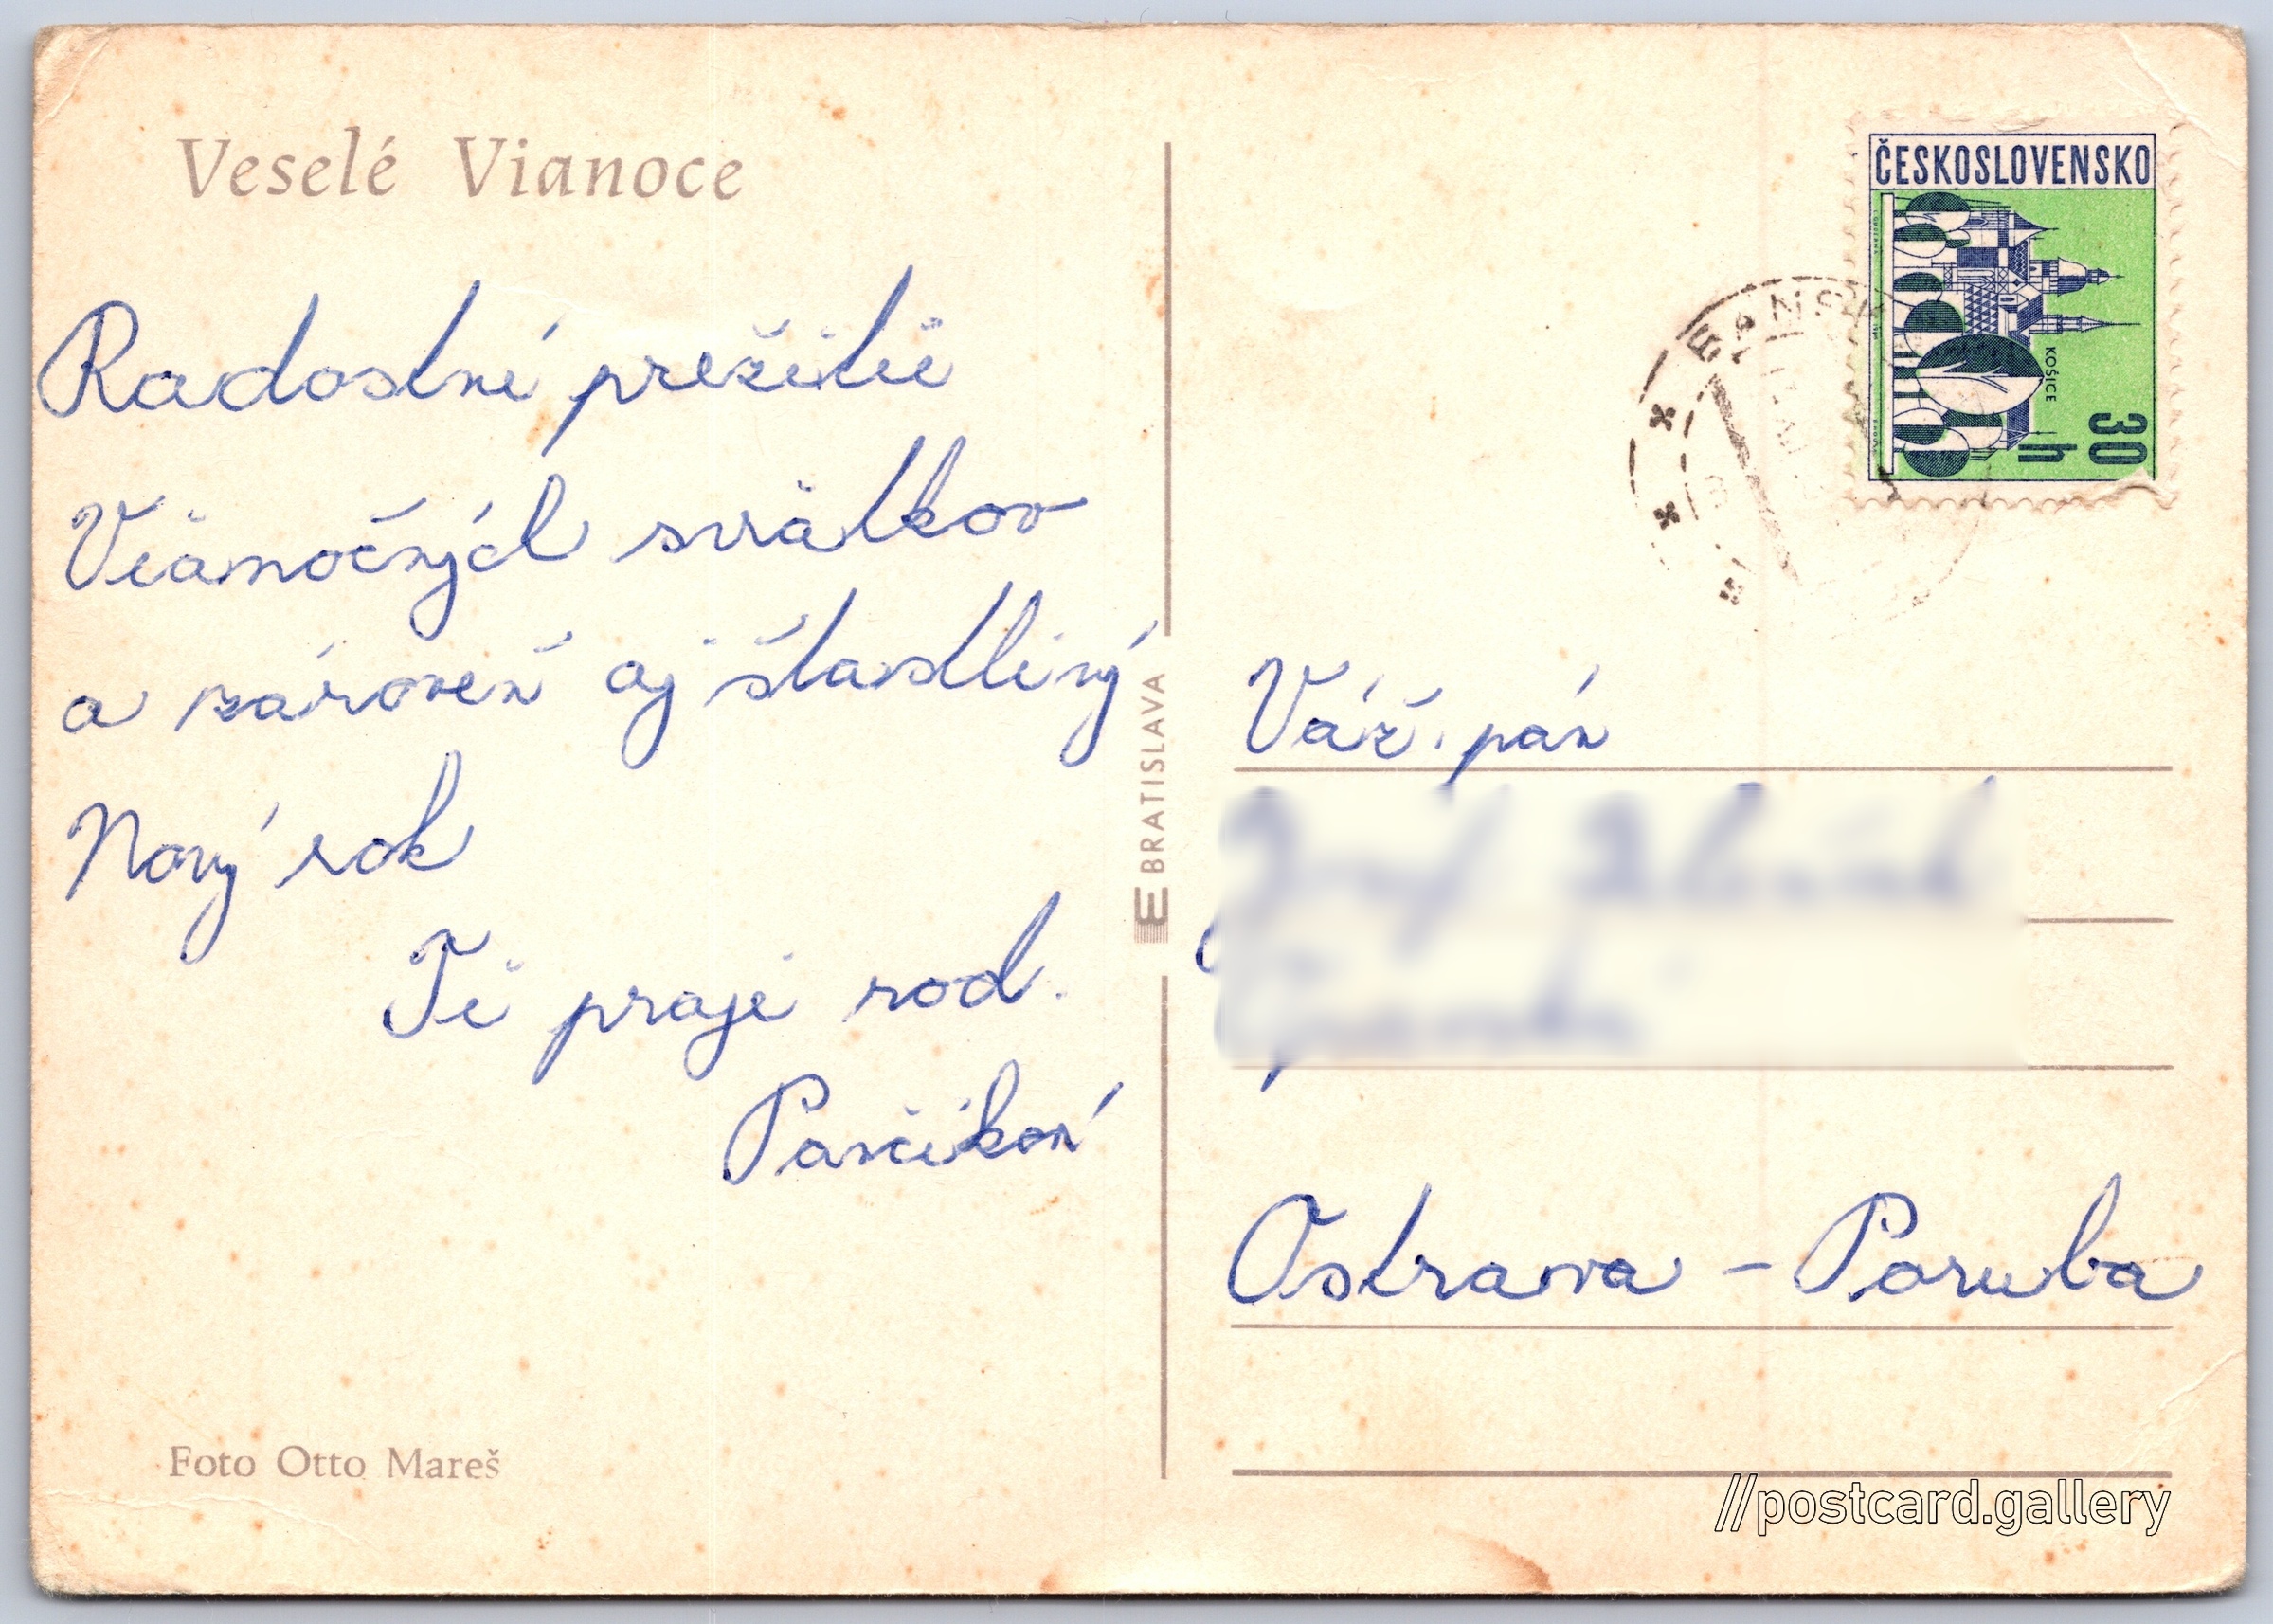 Veselé Vianoce
Radostné prežitie
Vianočných sviatkov
a zároveň aj štastlivý
Nový rok
Ti praje rod.
Foto Otto Mareš
E BRATISLAVA
ČESKOSLOVENSKO
KOŠICE
30
h
BANSK
Váž. pán
Ostrava - Poruba
//postcard.gallery